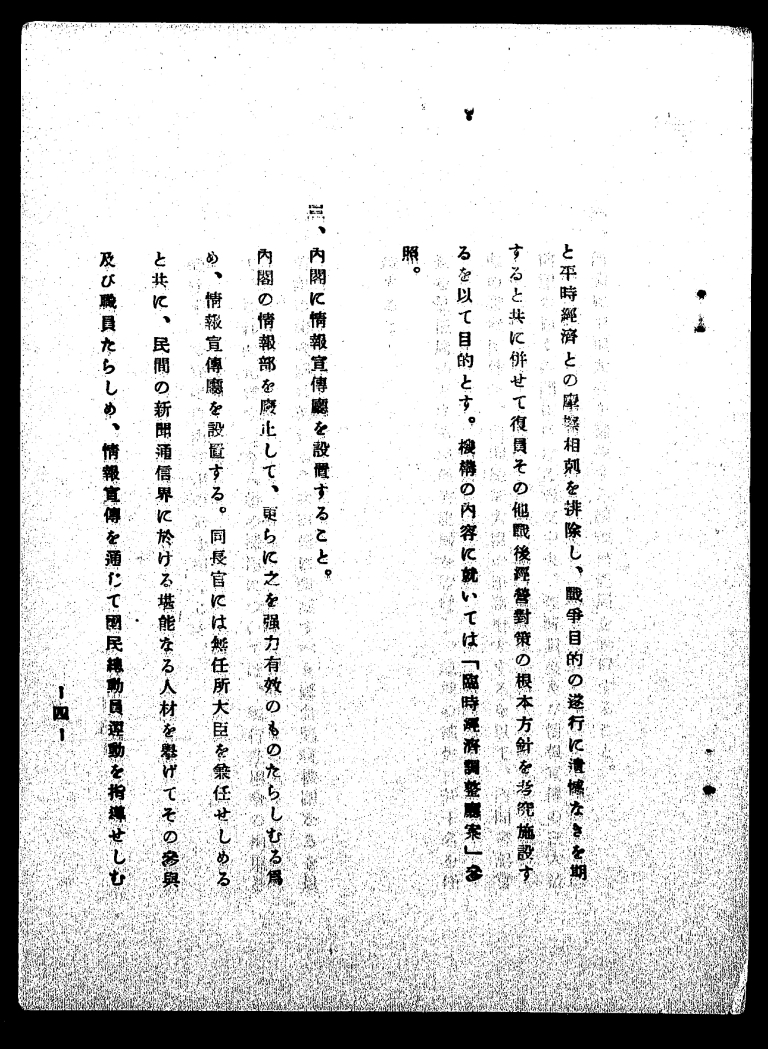 と平時經濟との摩擦相剋を排除し、戰爭目的の遂行に遺憾なきを期
すると共に併せて復員その他戰後經營對策の根本方針を考究施設す
るを以て目的とす。機構の內容に就いては「臨時經濟調整廳案」參
照。
三、內閣に情報宣傳廳を設置すること。
內閣の情報部を廢止して、更らに之を强力有效のものたらしむる爲
め、情報宣傳廳を設置する。同長官には無任所大臣を兼任せしめる
と共に、民間の新聞通信界に於ける堪能なる人材を擧げてその參與
及び職員たらしめ、情報宣傳を通じて國民總動員運動を指導せしむ
ー四ー